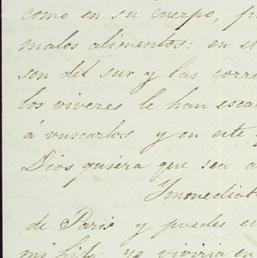 como en su cuerpo, p
malos alimentos: en e
son del sur y las corr
los viveres le han esca
á vuscarlos y en este
Dios quiera que sea a
Ynmediat
de Paris y puedes e
mi hijo: Yo viviria en